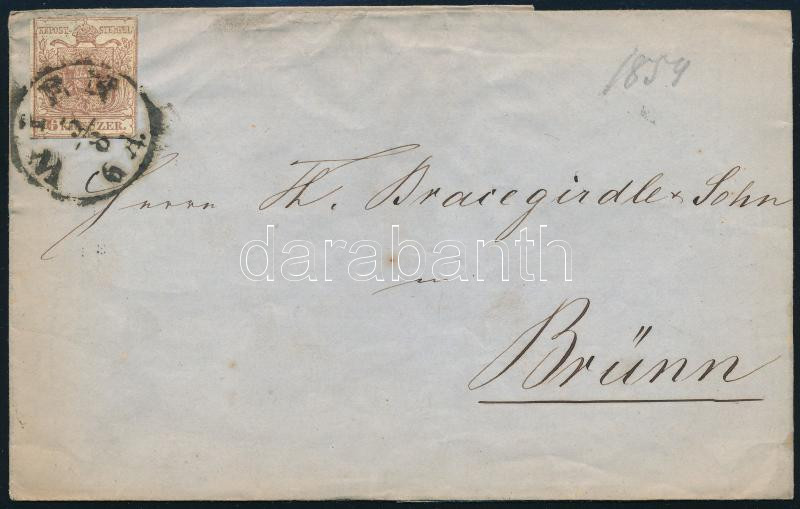 KK POST-STEMPEL
6 KREUZER.
WIEN
6 A.
1859
Herrn Th. Bracegirdle & Sohn
in
Brünn
darabanth